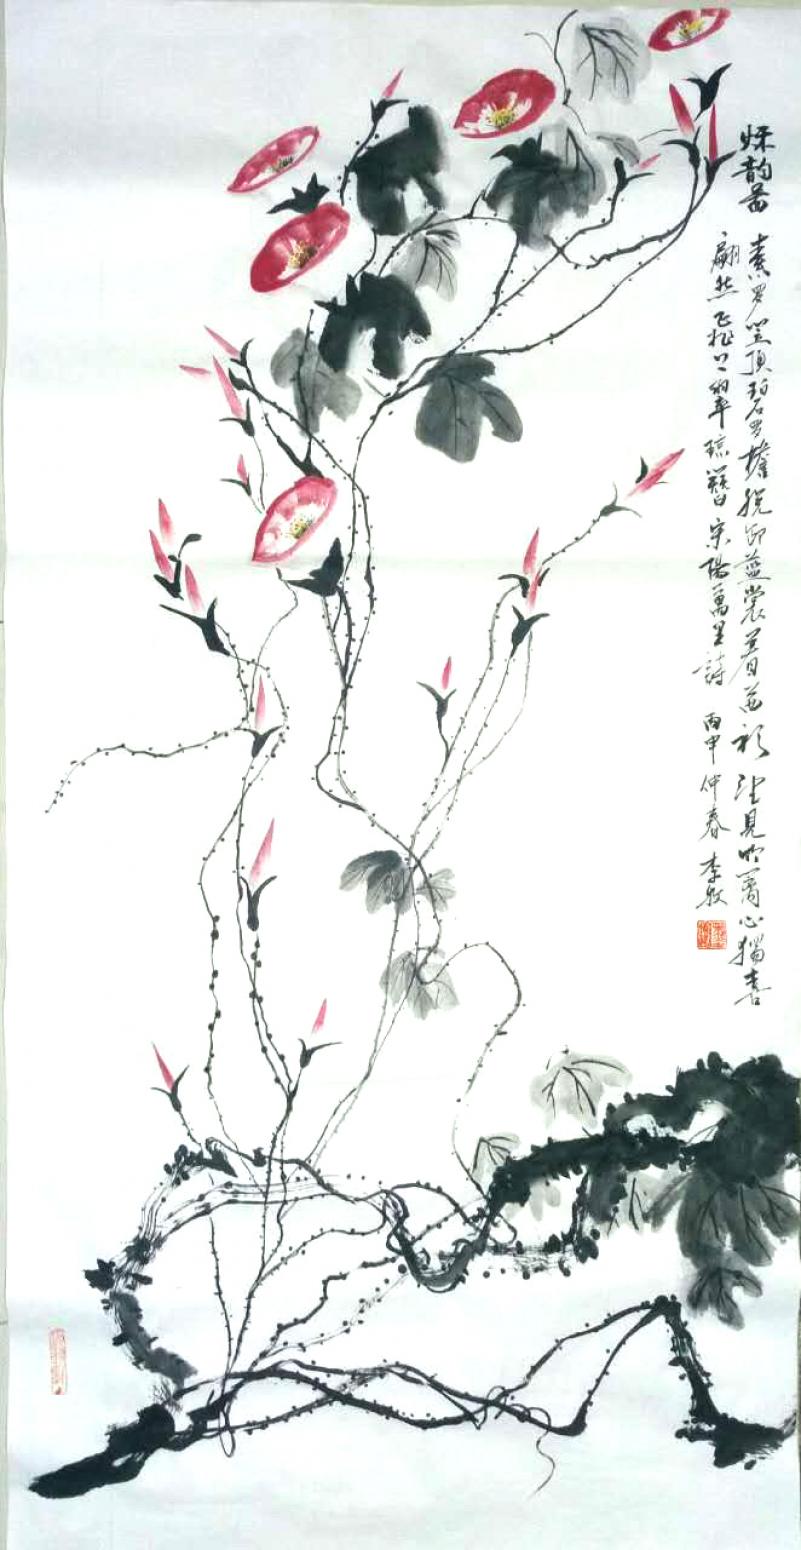 秌韵图 素罗笠顶碧罗檐脱卸蓝裳着茜衫望見竹篱心獨喜
翩然飞上翠琼簪 宋杨萬里詩 丙申仲春 李牧